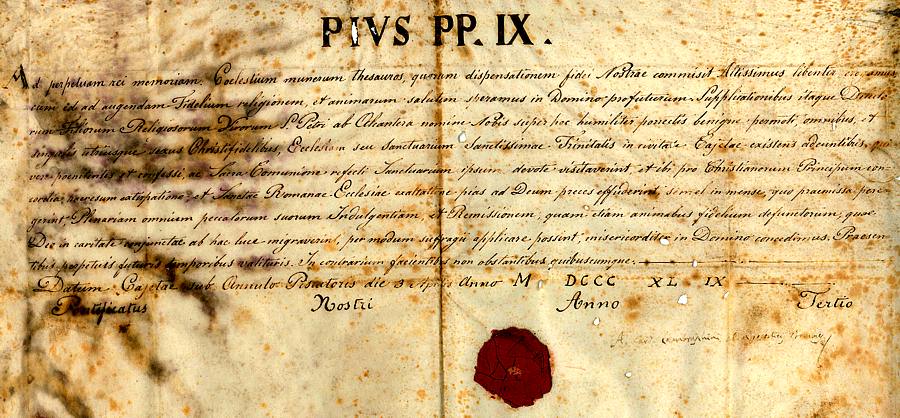 PIVS PP. IX.
Ad perpetuam rei memoriam. Coelestium munerum thesauros, quorum dispensationem fidei Nostrae commisit Altissimus libenter erogamus
cum id ad augendam Fidelium religionem, et animarum salutem speramus in Domino profuturum. Supplicationibus itaque Dilecto
rum Filiorum Religiosorum Virorum S. Petri ab Alcantera nomine Nobis super hoc humiliter porrectis benigne permoti, omnibus, et
singulis utriusque sexus Christifidelibus, Ecclesiam seu Sanctuarum Sanctissimae Trinitatis in civitate Cajetae existens adeuntibus, qui
vere poenitentes et confessi, ac Sacra Comunione refecti Sanctuarium ipsum devote visitaverint, et ibi pro Christianorum Principum con-
cordia, haeresum extirpatione, et Sanctae Romanae Ecclesiae exaltatione pias ad Deum preces effuderint, semel in mense, quo praemissa pere
gerint Plenariam omnium peccatorum suorum Indulgentiam, et Remissionem, quam etiam animabus fidelium defunctorum, quae
Deo in caritate conjunctae ab hac luce migraverint, per modum sufragii applicare possint, misericorditer in Domino concedimus. Praesen-
tibus perpetuis futuris temporibus valituris. In contrarium facientibus non obstantibus quibuscumque.
Datum Cajetae sub Annulo Piscatoris die 3 Aprilis Anno M DCCC XL IX
Pontificatus Nostri Anno Tertio